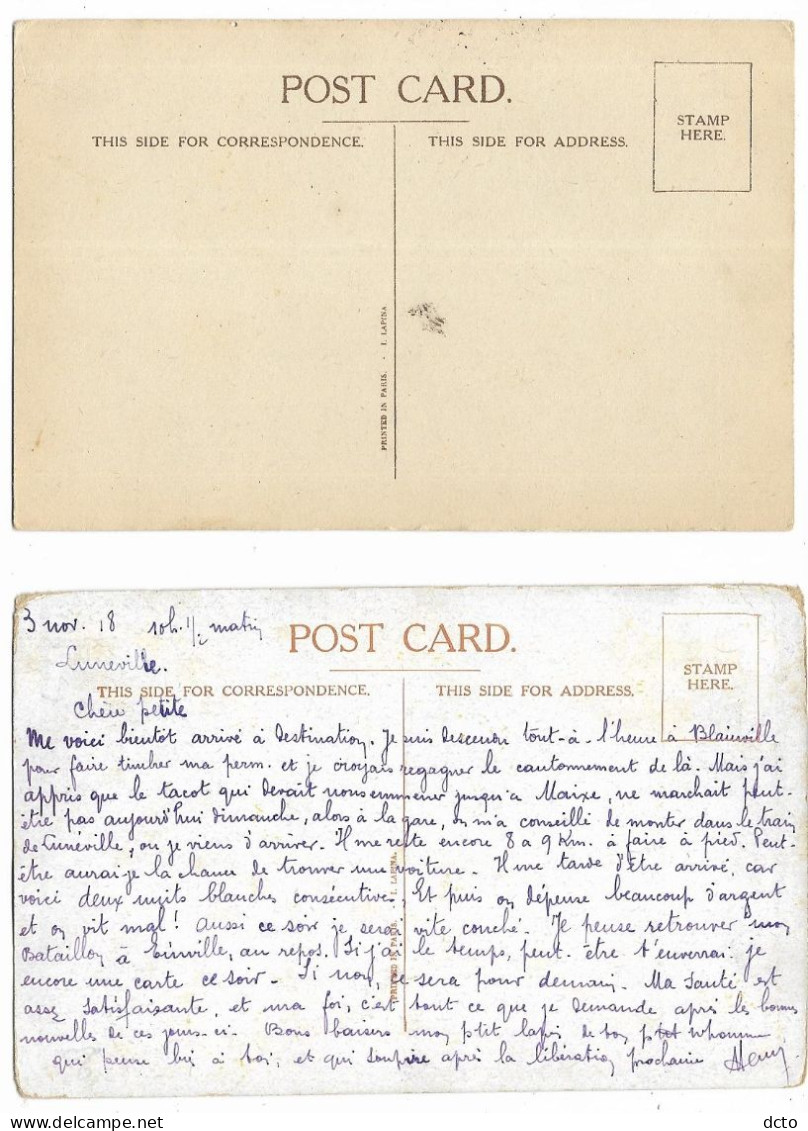 POST CARD.
THIS SIDE FOR CORRESPONDENCE.
THIS SIDE FOR ADDRESS.
STAMP
HERE.
PRINTED IN PARIS. - I. LAPINA
3 nov. 18 10h. 1/2 matin
Lunéville.
POST CARD.
THIS SIDE FOR CORRESPONDENCE.
THIS SIDE FOR ADDRESS.
STAMP
HERE.
PRINTED IN PARIS. I. LAPINA.
Chère petite
Me voici bientôt arrivé à destination. Je suis descendu tout-à-l'heure à Blainville
pour faire timbrer ma perm. et je croyais regagner le cantonnement de là. Mais j'ai
appris que le tacot qui devait nous emmener jusqu'à Maixe, ne marchait peut-
être pas aujourd'hui dimanche, alors à la gare, on m'a conseillé de monter dans le train
de Lunéville, où je viens d'arriver. Il me reste encore 8 à 9 Km. à faire à pied. Peut-
être aurai-je la chance de trouver une voiture. Il me tarde d'être arrivé, car
voici deux nuits blanches consécutives. Et puis on dépense beaucoup d'argent
et on vit mal! Aussi ce soir je serai vite couché. Je pense retrouver mon
Bataillon à Einville, au repos. Si j'ai le temps, peut-être t'enverrai-je
encore une carte ce soir. Si non, ce sera pour demain. Ma santé est
assez satisfaisante, et ma foi, c'est tout ce que je demande après les bonnes
nouvelles de ces jours-ci. Bons baisers mon p'tit lapin de ton p'tit
qui pense bien à toi, et qui soupire après la libération prochaine Henry